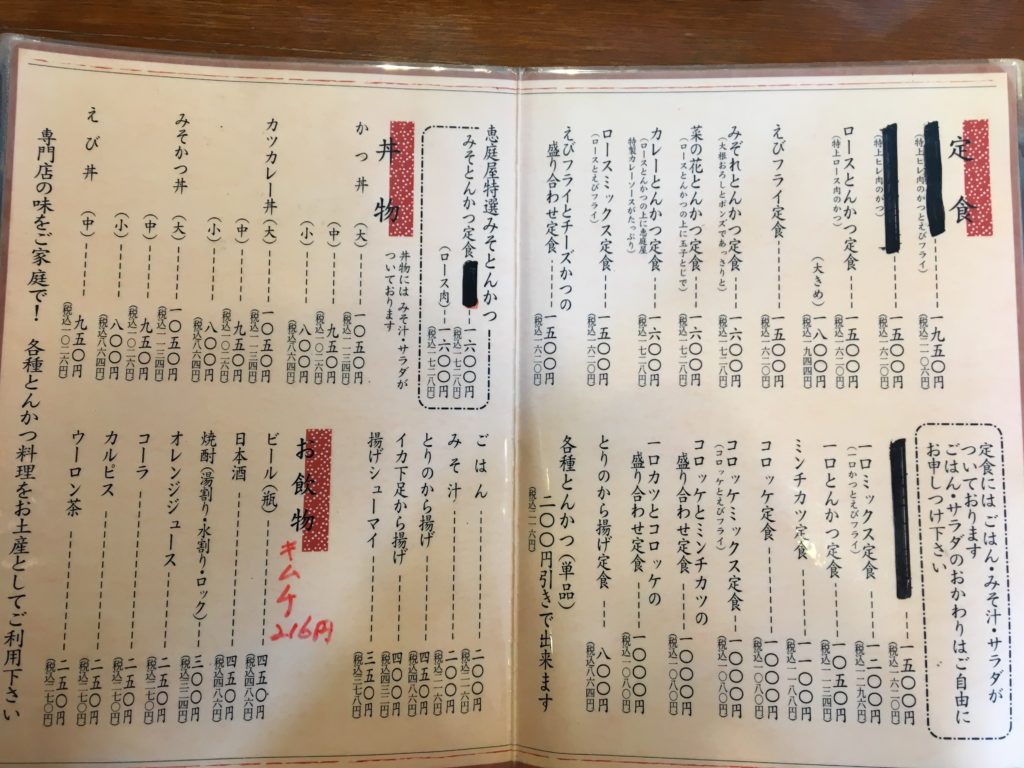 定食
(特上ヒレ肉のかつとえびフライ)
一九五〇円
(税込二一〇六円)
(特上ヒレ肉のかつ)
一五〇〇円
(税込一六二〇円)
ロースとんかつ定食
(特上ロース肉のかつ)
一五〇〇円
(税込一六二〇円)
(大きめ)
一八〇〇円
(税込一九四四円)
えびフライ定食
一五〇〇円
(税込一六二〇円)
みぞれとんかつ定食
(大根おろしとポンズであっさりと)
一六〇〇円
(税込一七二八円)
菜の花とんかつ定食
(ロースとんかつの上に玉子とじで)
一六〇〇円
(税込一七二八円)
カレーとんかつ定食
(ロースとんかつの上に恵庭屋
特製カレーソースがたっぷり)
一六〇〇円
(税込一七二八円)
ロースミックス定食
(ロースとえびフライ)
一五〇〇円
(税込一六二〇円)
えびフライとチーズかつの
盛り合わせ定食
一五〇〇円
(税込一六二〇円)
定食にはごはん・みそ汁・サラダが
ついております
ごはん・サラダのおかわりはご自由に
お申しつけ下さい
一五〇〇円
(税込一六二〇円)
一口ミックス定食
(一口かつとえびフライ)
一二〇〇円
(税込一二九六円)
一口とんかつ定食
一〇五〇円
(税込一一三四円)
ミンチカツ定食
一一〇〇円
(税込一一八八円)
コロッケ定食
一〇〇〇円
(税込一〇八〇円)
コロッケミックス定食
(コロッケとえびフライ)
一〇〇〇円
(税込一〇八〇円)
コロッケとミンチカツの
盛り合わせ定食
一〇〇〇円
(税込一〇八〇円)
一口カツとコロッケの
盛り合わせ定食
一〇〇〇円
(税込一〇八〇円)
とりのから揚げ定食
八〇〇円
(税込八六四円)
各種とんかつ(単品)
二〇〇円引きで出来ます
(税込二一六円)
恵庭屋特選みそとんかつ
みそとんかつ定食
一六〇〇円
(税込一七二八円)
(ロース肉)
一六〇〇円
(税込一七二八円)
丼物
丼物にはみそ汁・サラダが
ついております
かつ丼
(大)
一〇五〇円
(税込一一三四円)
(中)
九五〇円
(税込一〇二六円)
(小)
八〇〇円
(税込八六四円)
カツカレー丼
(大)
一〇五〇円
(税込一一三四円)
(中)
九五〇円
(税込一〇二六円)
(小)
八〇〇円
(税込八六四円)
みそかつ丼
(大)
一〇五〇円
(税込一一三四円)
(中)
九五〇円
(税込一〇二六円)
(小)
八〇〇円
(税込八六四円)
えび丼
(中)
九五〇円
(税込一〇二六円)
ごはん
二〇〇円
(税込二一六円)
みそ汁
二〇〇円
(税込二一六円)
とりのから揚げ
四五〇円
(税込四八六円)
イカ下足から揚げ
四〇〇円
(税込四三二円)
揚げシューマイ
三五〇円
(税込三七八円)
お飲物
キムケ
216円
ビール(瓶)
四五〇円
(税込四八六円)
日本酒
四五〇円
(税込四八六円)
焼酎(湯割り・水割り・ロック)
三〇〇円
(税込三二四円)
オレンジジュース
二五〇円
(税込二七〇円)
コーラ
二五〇円
(税込二七〇円)
カルピス
二五〇円
(税込二七〇円)
ウーロン茶
二五〇円
(税込二七〇円)
専門店の味をご家庭で!　各種とんかつ料理をお土産としてご利用下さい